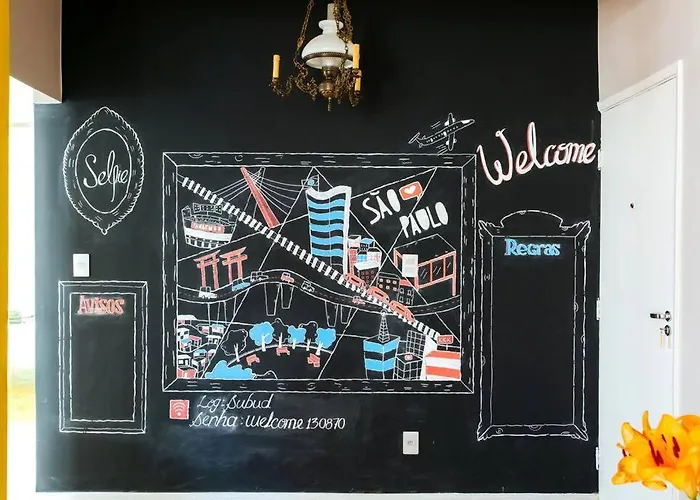 Selfie
Welcome
SÃO
PAULO
Regras
Avisos
Log: Subud
Senha: Welcome 130870